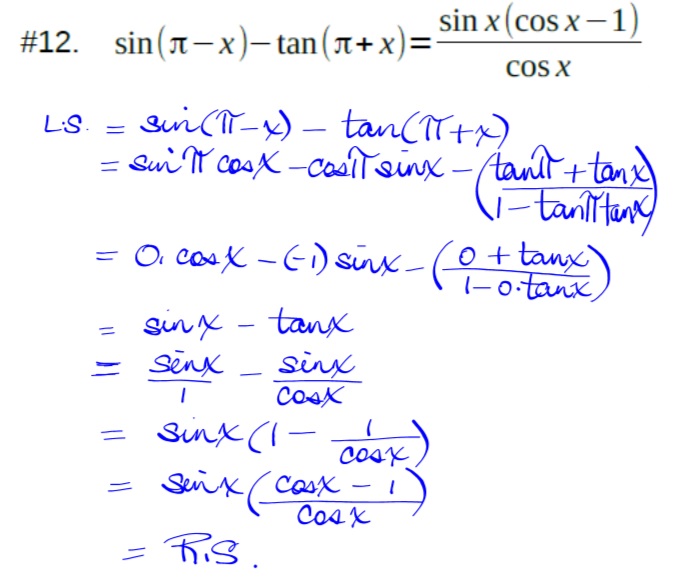 #12. sin(π−x)−tan(π+x)= sin x(cos x−1) / cos x
L.S. = sin(π−x) − tan(π+x)
= sinπ cosx − cosπ sinx − ((tanπ + tanx) / (1−tanπ tanx))
= 0. cosx − (−1) sinx − ((0 + tanx) / (1−0·tanx))
= sinx − tanx
= sinx / 1 − sinx / cosx
= sinx (1 − 1 / cosx)
= sinx ((cosx − 1) / cosx)
= R.S.